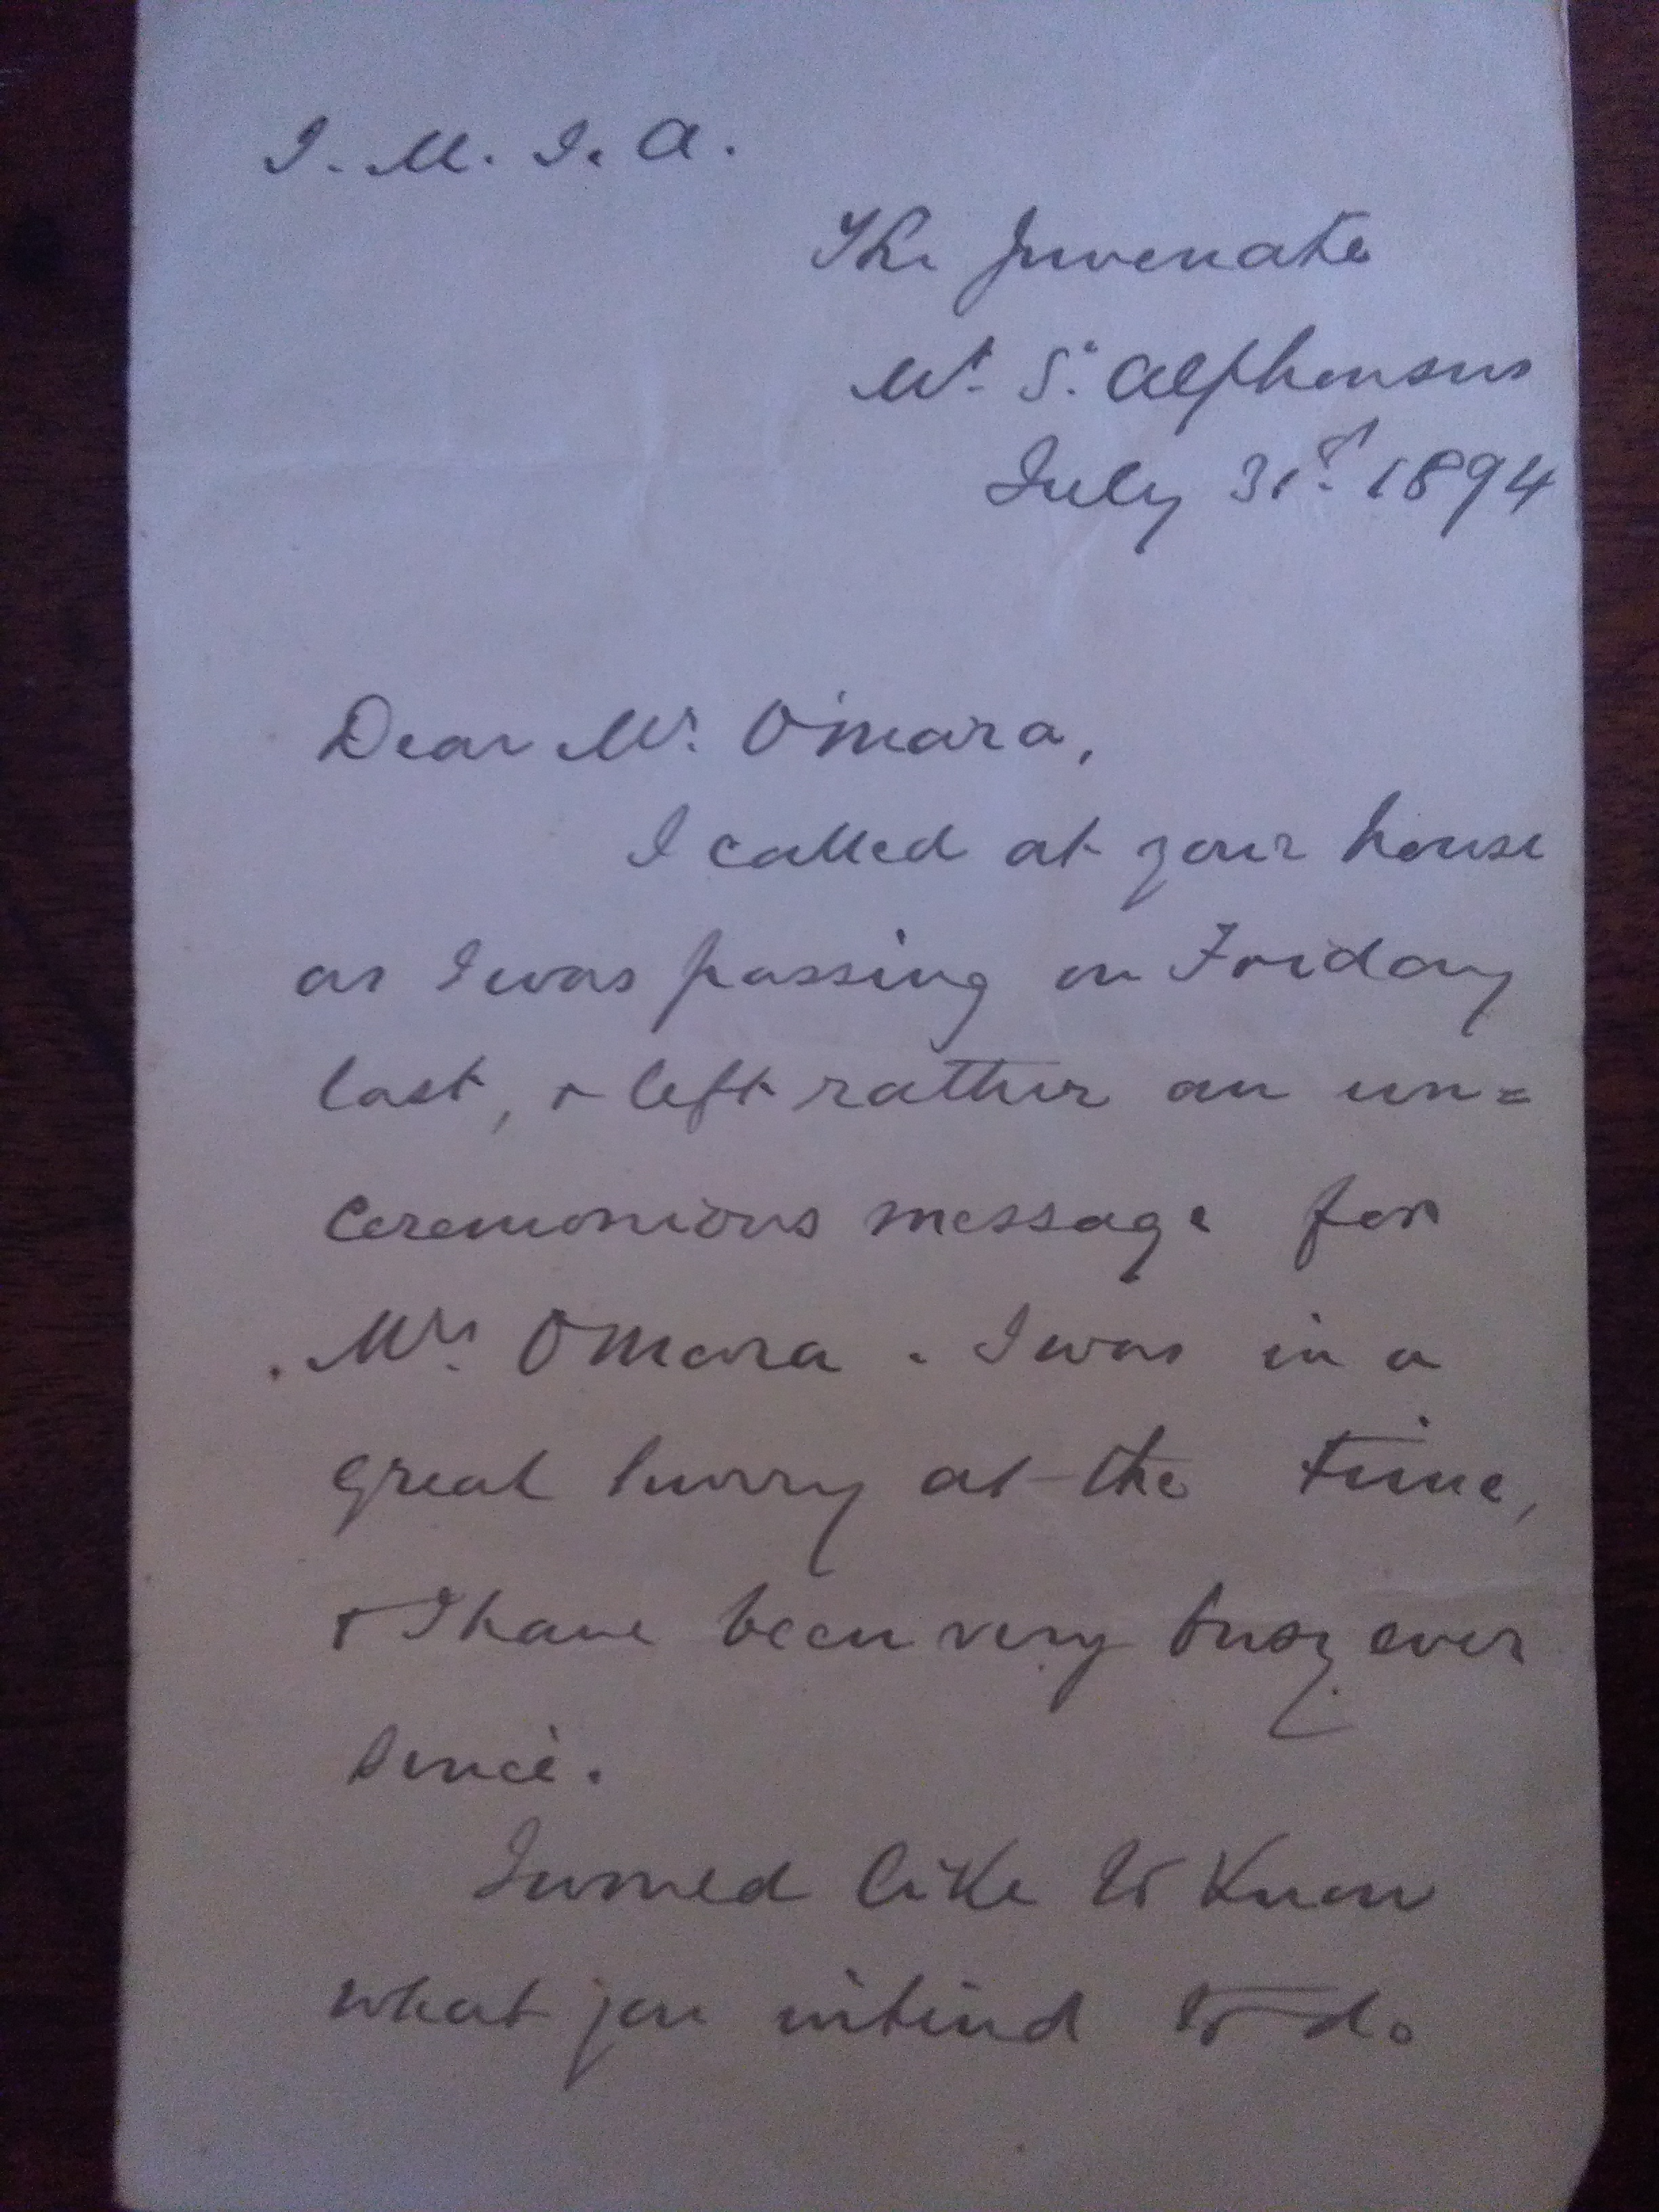 J. M. J. A.
The Juvenate
Mt. St. Alphonsus
July 31st. 1894
Dear Mr. O'Mara,
I called at your house
as I was passing on Friday
last, & left rather an un=
ceremonious message for
Mrs. O'Mara. I was in a
great hurry at the time,
& I have been very busy ever
since.
I would like to know
what you intend to do